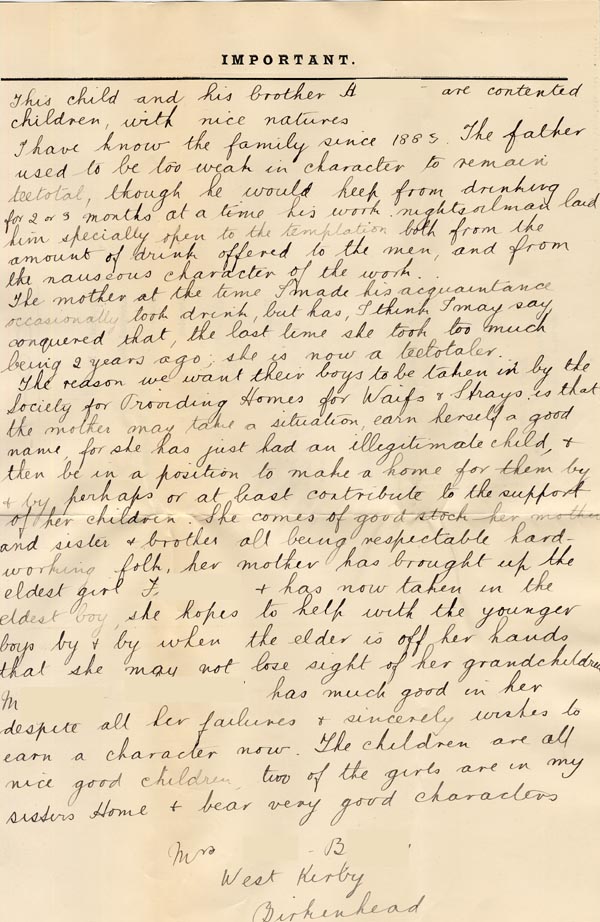 IMPORTANT.
This child and his brother A are contented
children, with nice natures
I have know the family since 1883. The father
used to be too weak in character to remain
teetotal, though he would keep from drinking
for 2 or 3 months at a time his work nightsoilman laid
him specially open to the temptation both from the
amount of drink offered to the men, and from
the nauseous character of the work.
The mother at the time I made his acquaintance
occasionally took drink, but has, I think I may say,
conquered that, the last time she took too much
being 2 years ago; she is now a teetotaler.
The reason we want their boys to be taken in by the
Society for Providing Homes for Waifs & Strays is that
the mother may take a situation, earn herself a good
name, for she has just had an illegitimate child, &
then be in a position to make a home for them by
& by perhaps or at least contribute to the support
of her children. She comes of good stock her mother
and sister & brother all being respectable hard-
working folk, her mother has brought up the
eldest girl F, & has now taken in the
eldest boy, she hopes to help with the younger
boys by & by when the elder is off her hands
that she may not lose sight of her grandchildren
M has much good in her
despite all her failures & sincerely wishes to
earn a character now. The children are all
nice good children, two of the girls are in my
sisters Home & bear very good characters
Mrs B
West Kirby
Birkenhead